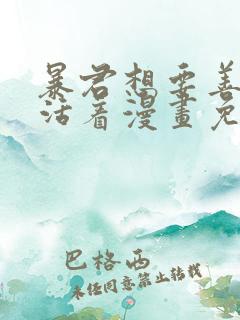 暴君想要善
活着漫畫免
巴格西
未经同意禁止转载